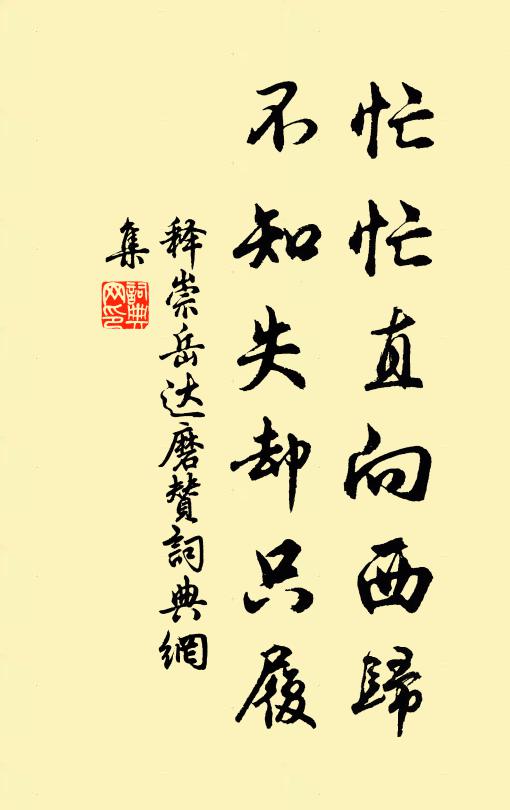 忙忙直向西歸
不知失却只履
释崇岳达磨赞詞典網
集
詞典网印